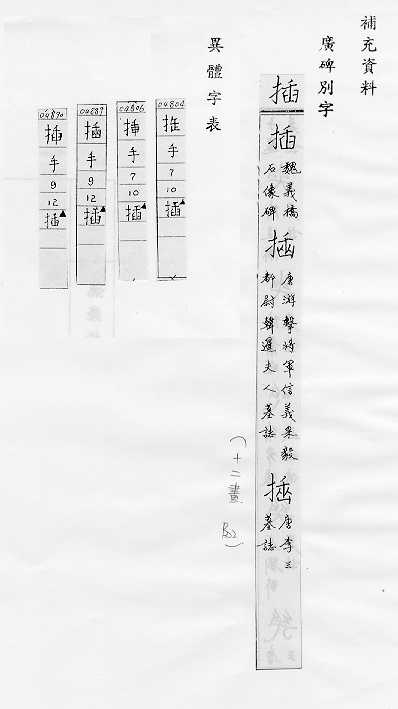 補充資料
廣碑別字
插
插 魏義橋石像碑
插 唐游擊將軍信義果毅都尉聲暹夫人墓誌
插 唐李三墓誌
(十二畫 B22)
異體字表
04804
手
7
10
插
04806
手
7
10
插
04889
手
9
12
插
04890
手
9
12
插